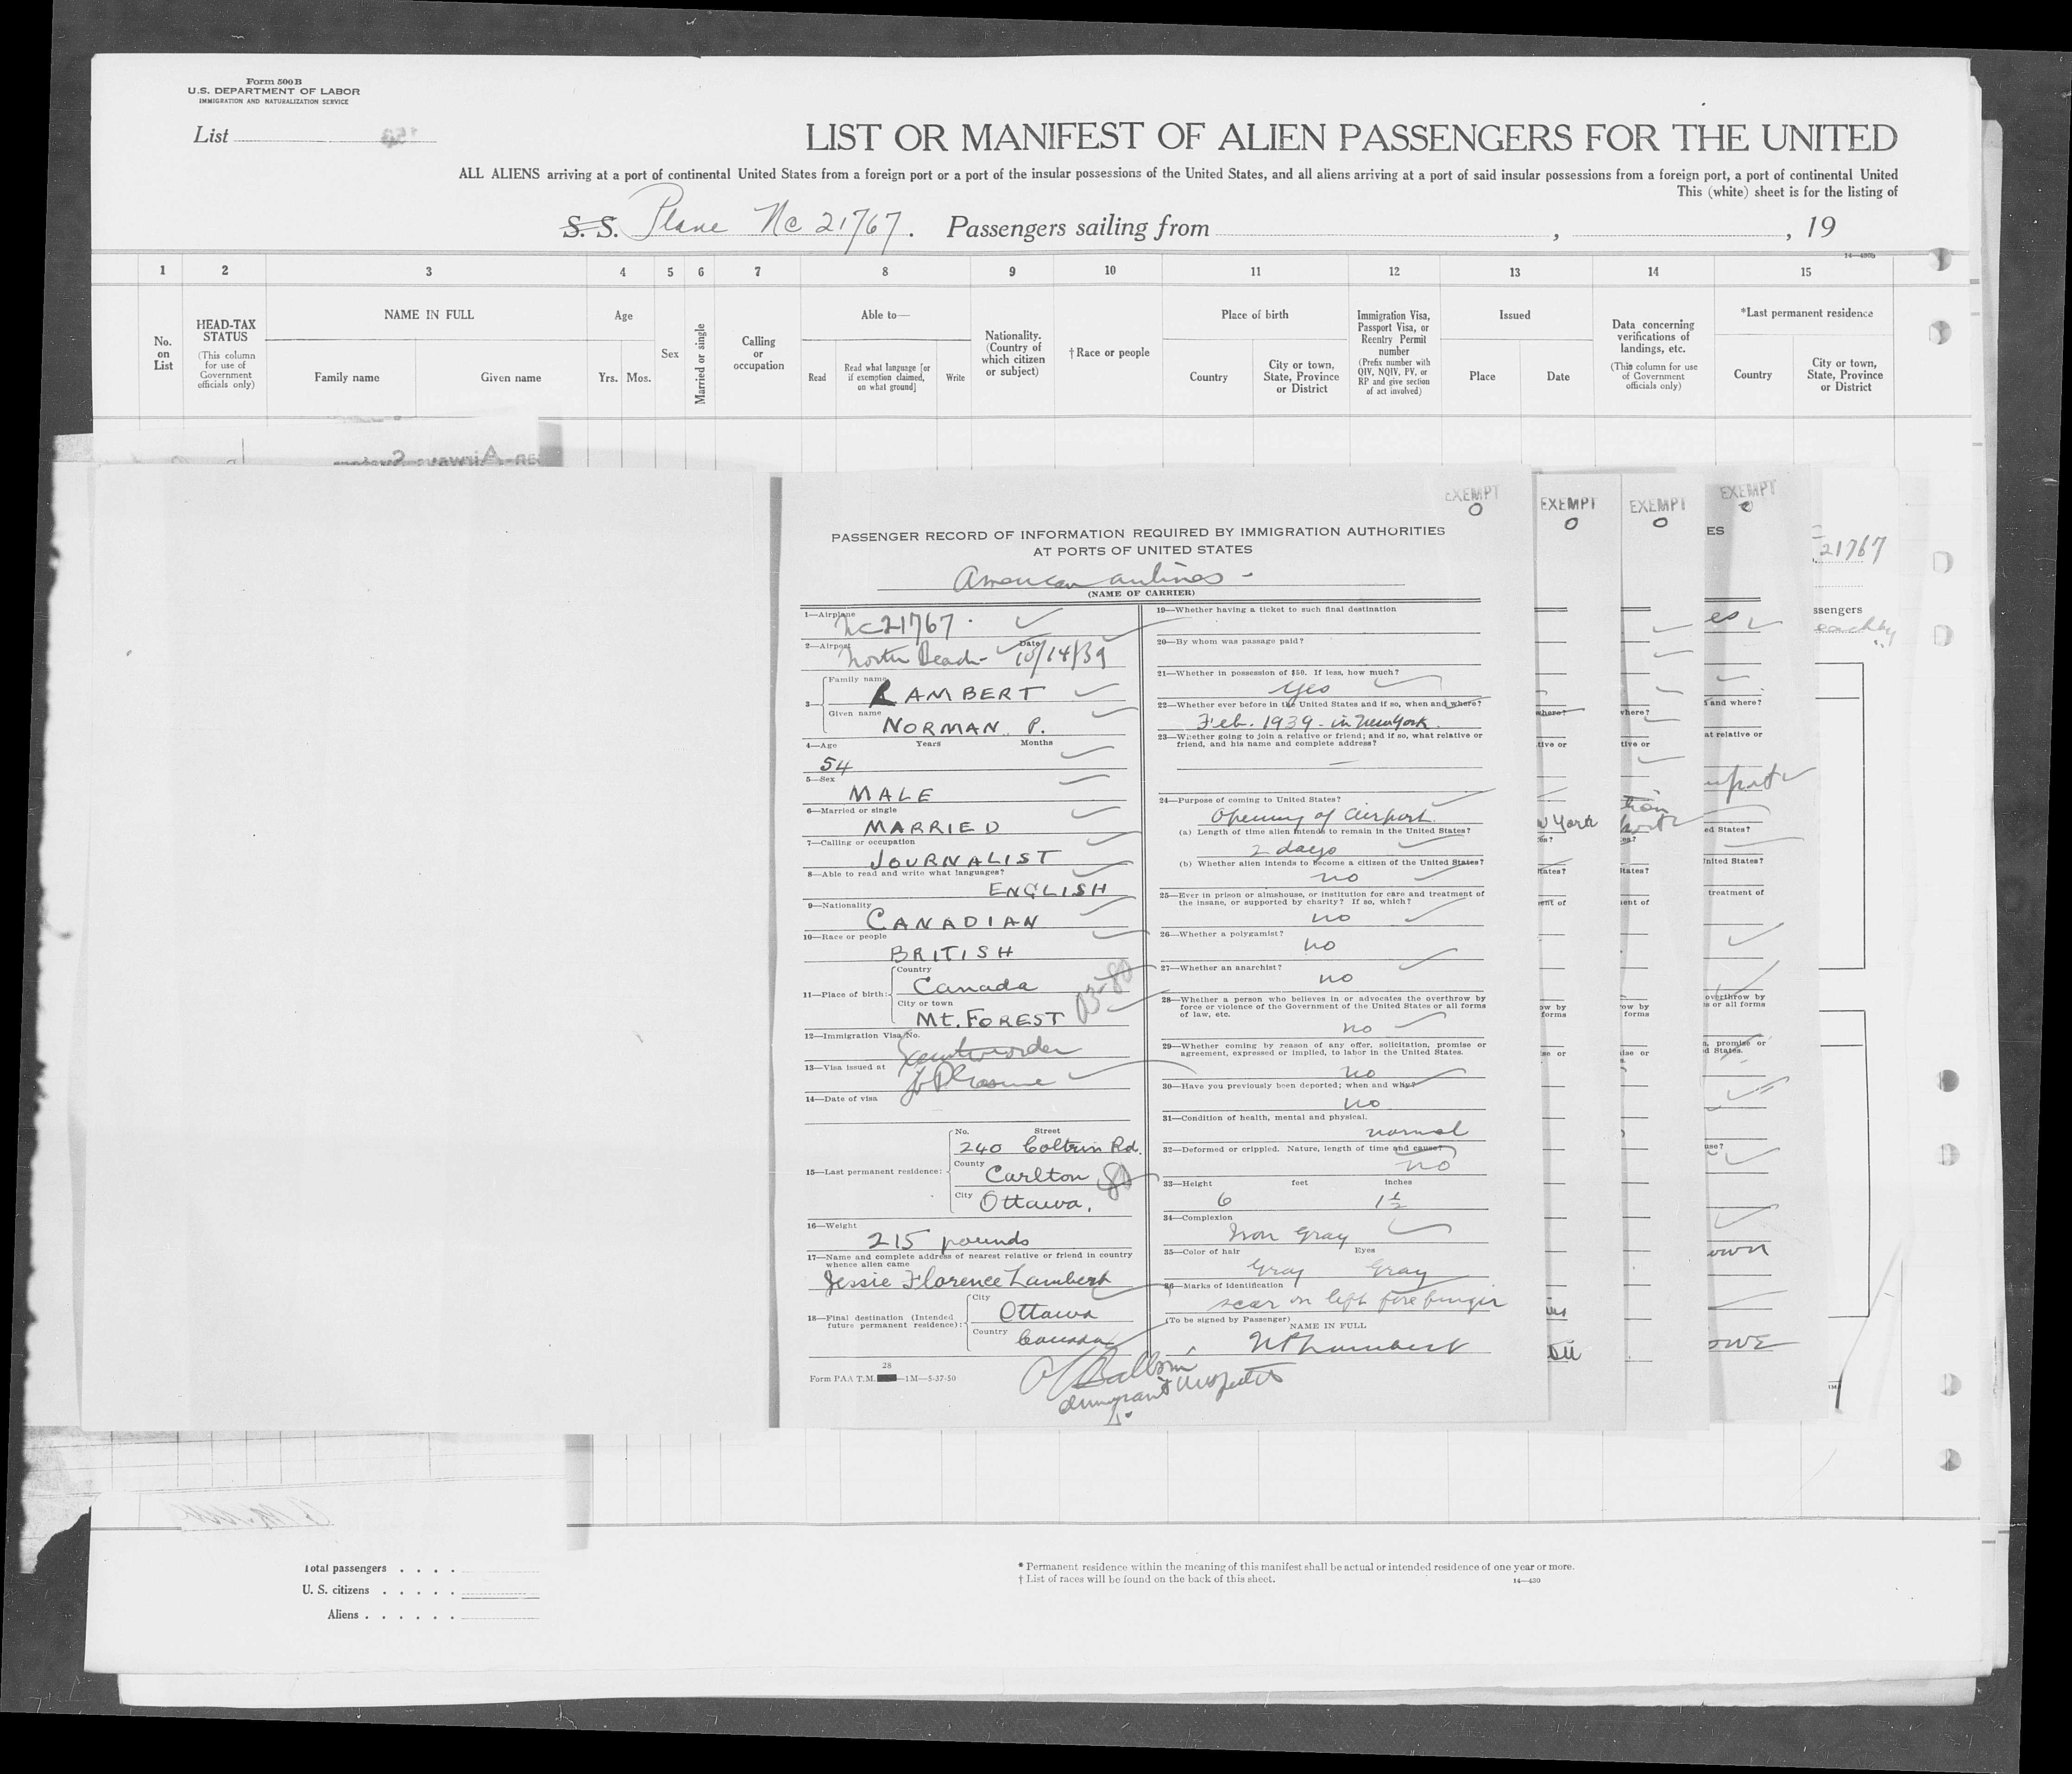 Form 500 B
U.S. DEPARTMENT OF LABOR
IMMIGRATION AND NATURALIZATION SERVICE
List
LIST OR MANIFEST OF ALIEN PASSENGERS FOR THE UNITED
ALL ALIENS arriving at a port of continental United States from a foreign port or a port of the insular possessions of the United States, and all aliens arriving at a port of said insular possessions from a foreign port, a port of continental United
This (white) sheet is for the listing of
S. S. Plane Nc 21767. Passengers sailing from , , 19
14—430b
1 2 3 4 5 6 7 8 9 10 11 12 13 14 15
No. on List
HEAD-TAX STATUS
(This column for use of Government officials only)
NAME IN FULL
Family name Given name
Age
Yrs. Mos.
Sex
Married or single
Calling or occupation
Able to—
Read
Read what language [or if exemption claimed, on what ground]
Write
Nationality. (Country of which citizen or subject)
†Race or people
Place of birth
Country
City or town, State, Province or District
Immigration Visa, Passport Visa, or Reentry Permit number
(Prefix number with QIV, NQIV, PV, or RP and give section of act involved)
Issued
Place Date
Data concerning verifications of landings, etc.
(This column for use of Government officials only)
*Last permanent residence
Country
City or town, State, Province or District
EXEMPT
O
EXEMPT
O
EXEMPT
O
EXEMPT
PASSENGER RECORD OF INFORMATION REQUIRED BY IMMIGRATION AUTHORITIES
AT PORTS OF UNITED STATES
American airlines -
(NAME OF CARRIER)
1—Airplane NC21767.
2—Airport North Beach - Date 10/14/39
3— Family name LAMBERT
Given name NORMAN P.
4—Age Years Months
54
5—Sex
MALE
6—Married or single
MARRIED
7—Calling or occupation
JOURNALIST
8—Able to read and write what languages?
ENGLISH
9—Nationality
CANADIAN
10—Race or people
BRITISH
11—Place of birth: Country
Canada
City or town
Mt. FOREST
03-80
12—Immigration Visa No.
13—Visa issued at
14—Date of visa
15—Last permanent residence: No. Street
240 Coltrin Rd.
County
Carlton
80
City Ottawa,
16—Weight
215 pounds
17—Name and complete address of nearest relative or friend in country
whence alien came
Jessie Florence Lambert
18—Final destination (Intended
future permanent residence): City
Ottawa
Country Canada
28
Form PAA T.M. —1M—5-37-50
19—Whether having a ticket to such final destination
20—By whom was passage paid?
21—Whether in possession of $50. If less, how much?
Yes
22—Whether ever before in the United States and if so, when and where?
Feb. 1939 - in New York.
23—Whether going to join a relative or friend; and if so, what relative or
friend, and his name and complete address?
—
24—Purpose of coming to United States?
Opening of Airport.
(a) Length of time alien intends to remain in the United States?
2 days
(b) Whether alien intends to become a citizen of the United States?
no
25—Ever in prison or almshouse, or institution for care and treatment of
the insane, or supported by charity? If so, which?
no
26—Whether a polygamist?
no
27—Whether an anarchist?
no
28—Whether a person who believes in or advocates the overthrow by
force or violence of the Government of the United States or all forms
of law, etc.
no
29—Whether coming by reason of any offer, solicitation, promise or
agreement, expressed or implied, to labor in the United States.
no
30—Have you previously been deported; when and why?
no
31—Condition of health, mental and physical.
normal
32—Deformed or crippled. Nature, length of time and cause?
no
33—Height feet inches
6 1½
34—Complexion
Iron Gray
35—Color of hair Eyes
Gray Gray
36—Marks of identification
scar on left fore finger
(To be signed by Passenger)
NAME IN FULL
NP Lambert
Immigrant Inspector
ES
21767
ssengers
where?
where?
and where?
tive or
tive or
at relative or
York
ed States?
tates?
tates?
nited States?
ent of
ent of
treatment of
ow by
forms
ow by
forms
overthrow by
s or all forms
se or
lse or
n, promise or
d States.
use?
own
OWE
Total passengers . . . .
U. S. citizens . . . . .
Aliens . . . . . .
* Permanent residence within the meaning of this manifest shall be actual or intended residence of one year or more.
† List of races will be found on the back of this sheet.
14—430